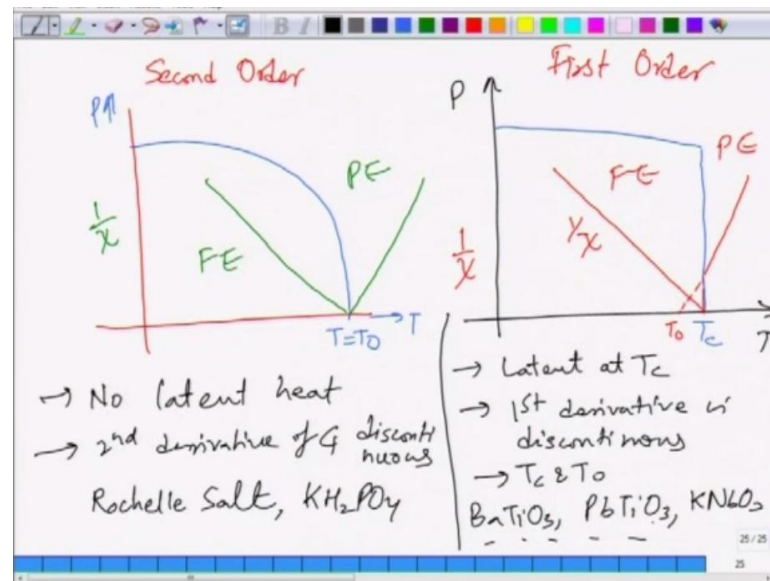 Second Order
P
1/χ
FE
PE
T=T0
T
→ No latent heat
→ 2nd derivative of G disconti
nuous
Rochelle Salt, KH2PO4
First Order
P
1/χ
1/χ
FE
PE
T0
Tc
T
→ Latent at Tc
→ 1st derivative is
discontinous
→ Tc & T0
BaTiO3, PbTiO3, KNbO3
25 / 25
25